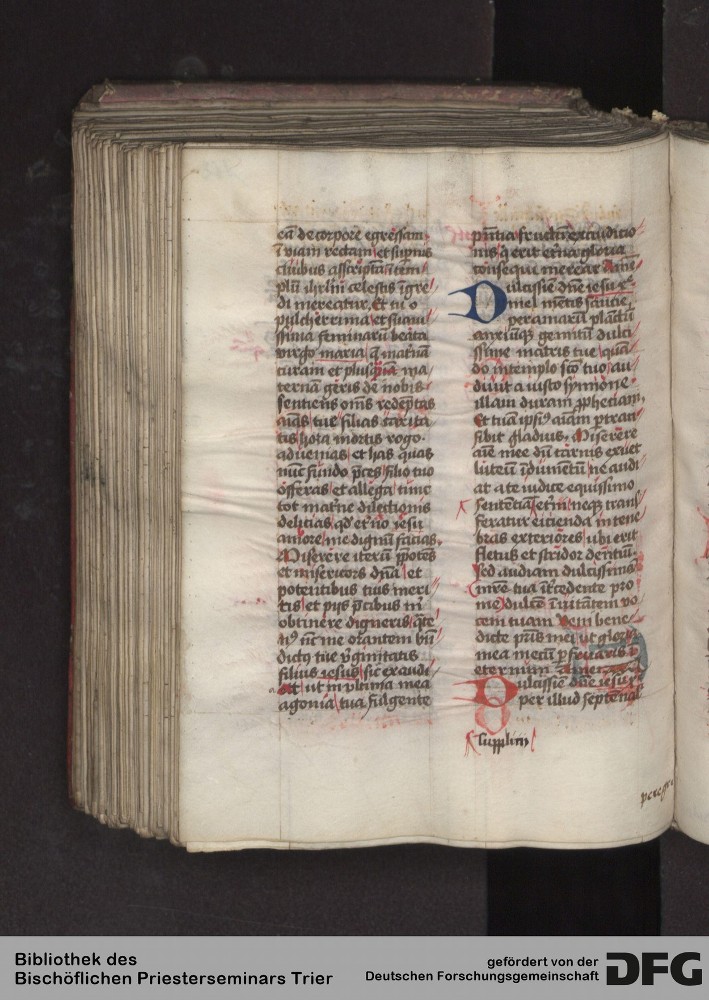 eā de corpore egressam
ī viam rectam et supnis
ciuibus asscriptā item
plū ihrlm̄ celestis īgre
di merear. Et tu o
pulcherrima et suaui
ssima feminarū beata
virgo maria q̄ mat̄nā
curam et plusq̄ ma
ternā geris de nobis
sentiēns om̄s redēptas
aīas tue filias carita
tis hora mortis rogo
aduenias et has quas
nūc fundo p̄ces filio tuo
offeras et allega tunc
tot mat̄ne dilectionis
delicias qd̄ et ī iesu
amore me dignū facias.
Miserere iterū ꝓpotēs
et misericors dn̄a et
potentibus tuis meri
tis et pijs p̄cibus m̄
obtinere digneris q̄te
nꝰ nc̄ me orantem bn̄
dictꝰ tue v̄ginitatis
filius iesus sic exaudi
at ut in vltima mea
agonia tua fulgente
pn̄tia fructū exauditio
nis q̄ erit et̄na gloria
consequi merear Amē
Dulcissie dn̄e iesu xp̄e
mel mentis saucie
per amarum planctū
anxiūq gemitū dulci
ssime matris tue quā
do in templo sc̄o tuo au
diuit a iusto symone
illam duram ꝓphetiam
Et tuā ipsiꝰ aīam ptran
sibit gladius. Miserere
aīe mee dū carnis exuet
luteū īdumentū ne audi
at a te iudice equissimo
sententiā et̄m neq trans
feratur eicienda in tene
bras exteriores vbi erit
fletus et stridor dentiū
Sed audiam dulcissima
mr̄e tua ītercedente pro
me dulcē īuitātem vo
cem tuam Veni bene
dicte pr̄is mei ut gloria
mea mecū pfruaris ī
eternum Amen
Dulcissie dn̄e iesu xp̄e
per illud septenal
supplicij
Bibliothek des
Bischöflichen Priesterseminars Trier
gefördert von der
Deutschen Forschungsgemeinschaft
DFG